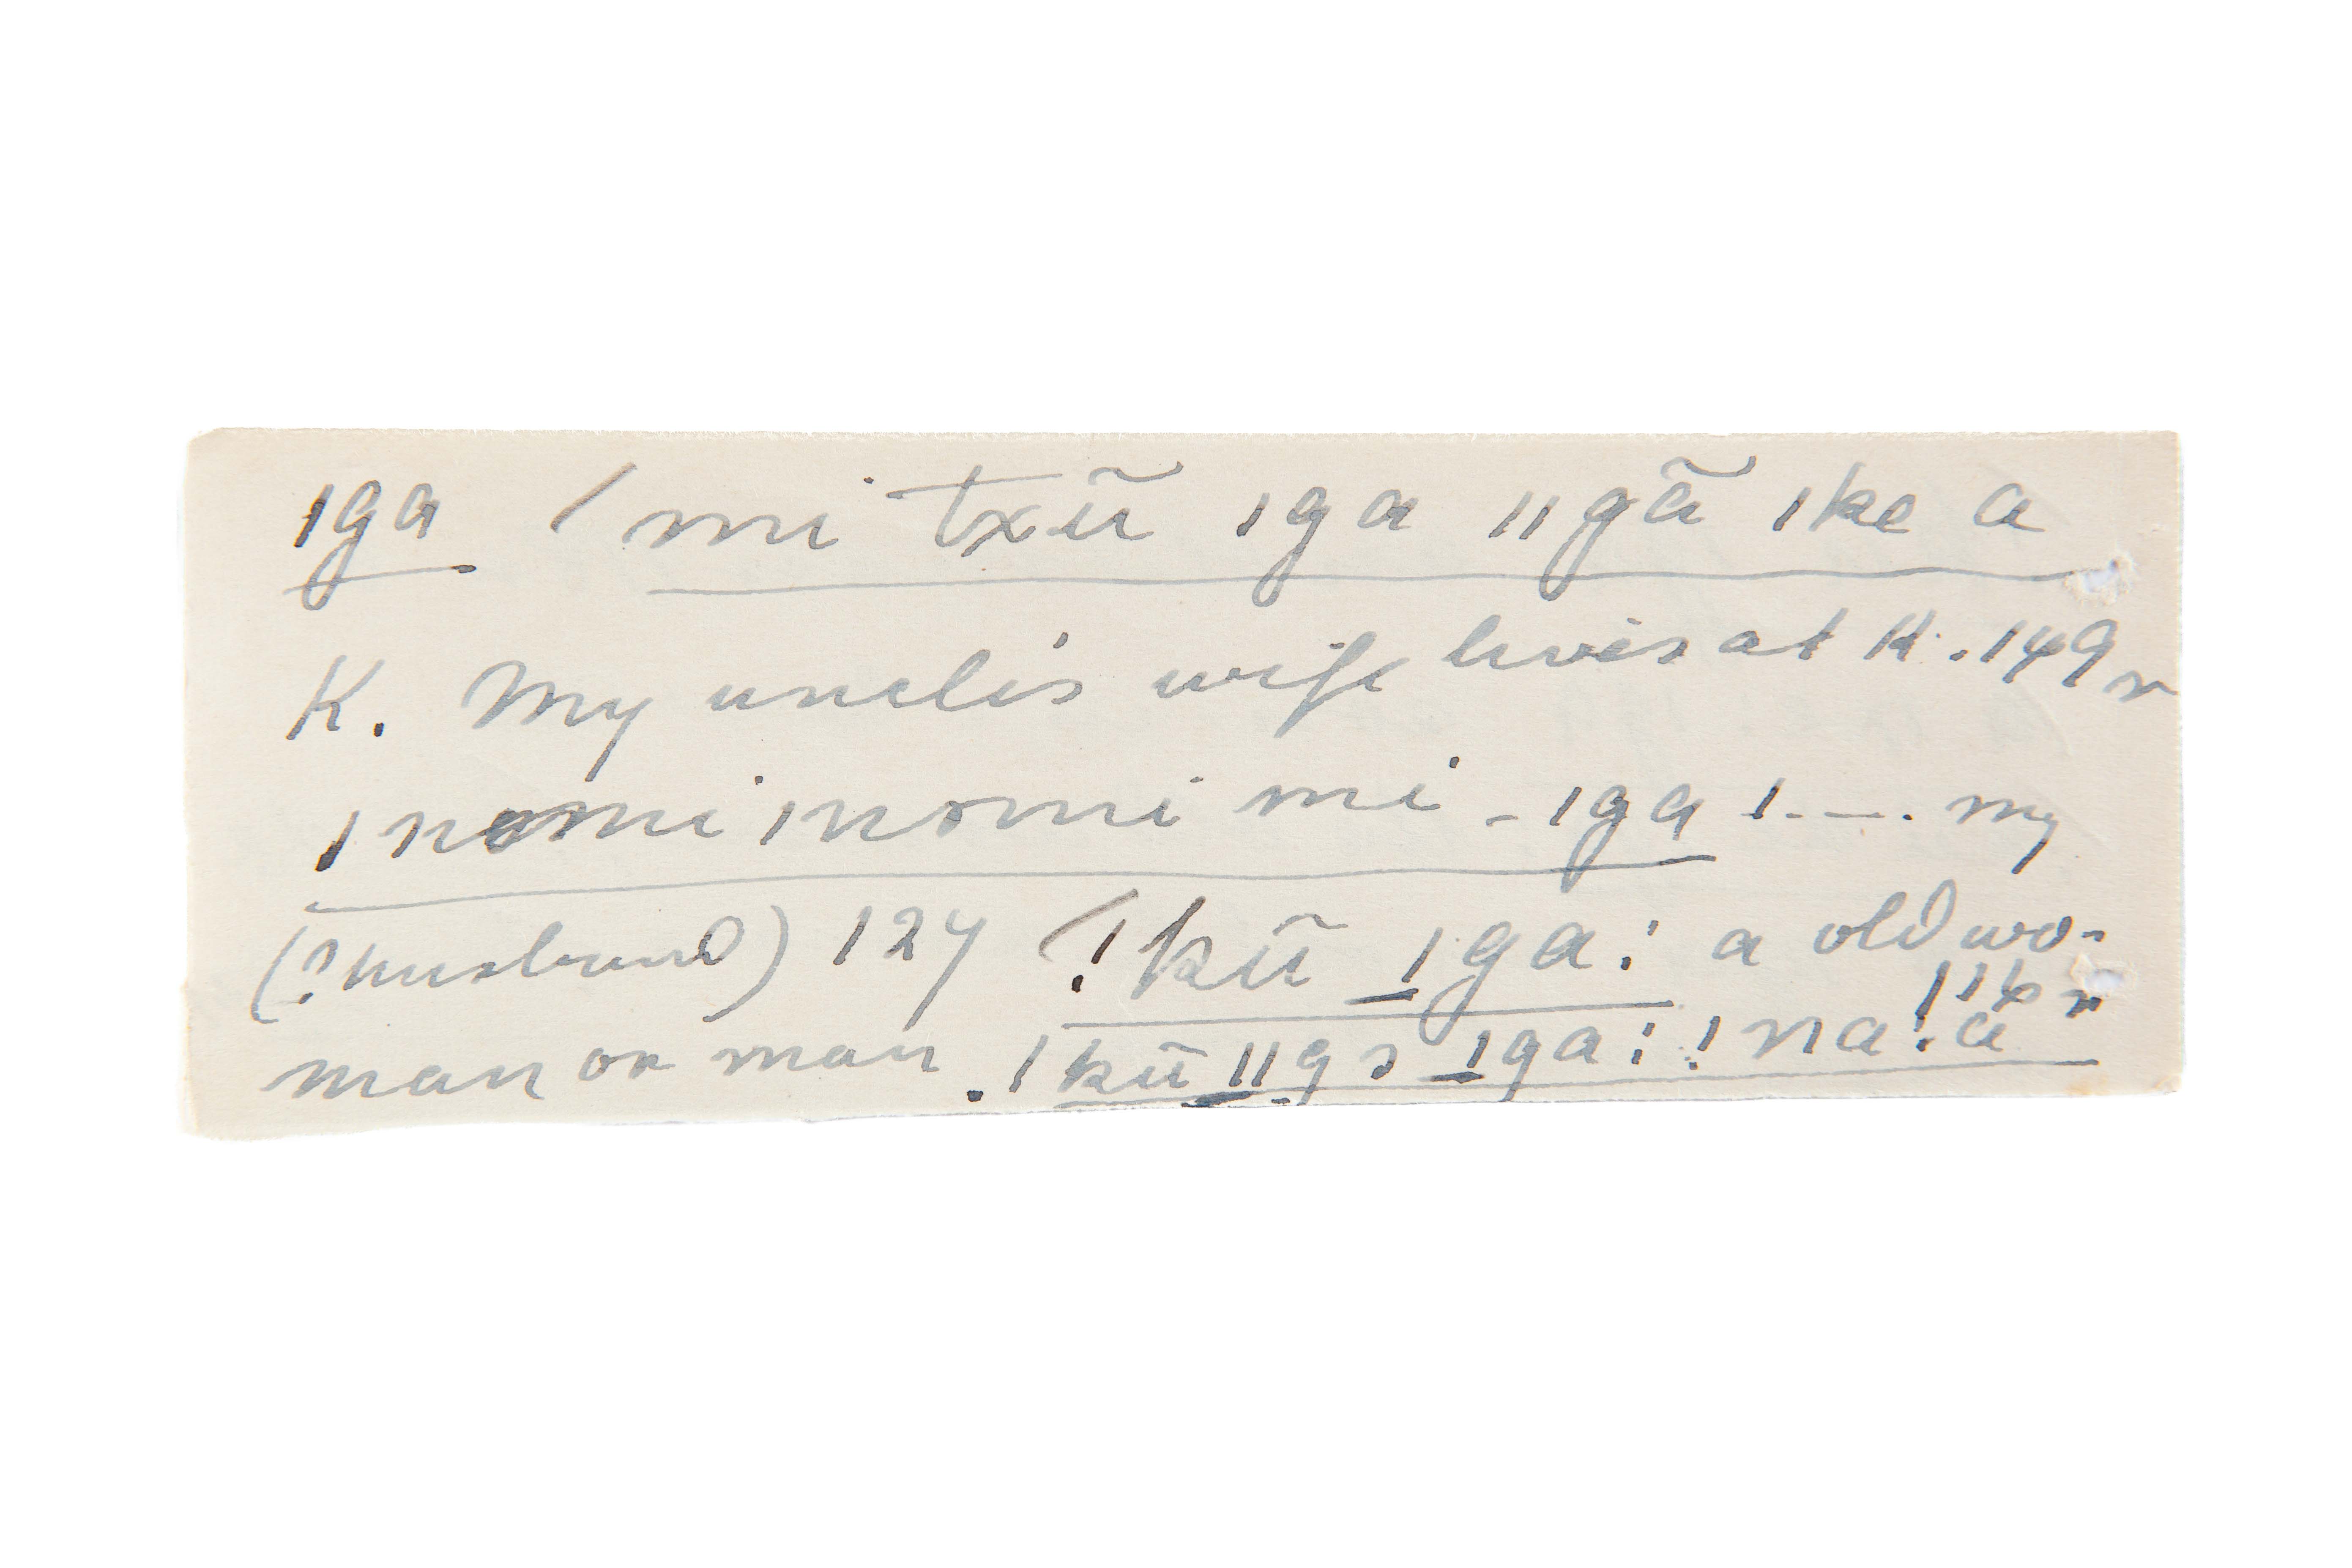 ǀga / mi txũ ǀga ǁgã ǀke a
K. My uncle's wife lives at K. 149 r
ǀnomi ǀnomi mi - ǀga ǀ . - - . my
(? husband) 127 / !kũ ǀga : a old wo-
man or man . !kũ ǁgs ǀga : ! na ! a 116 r